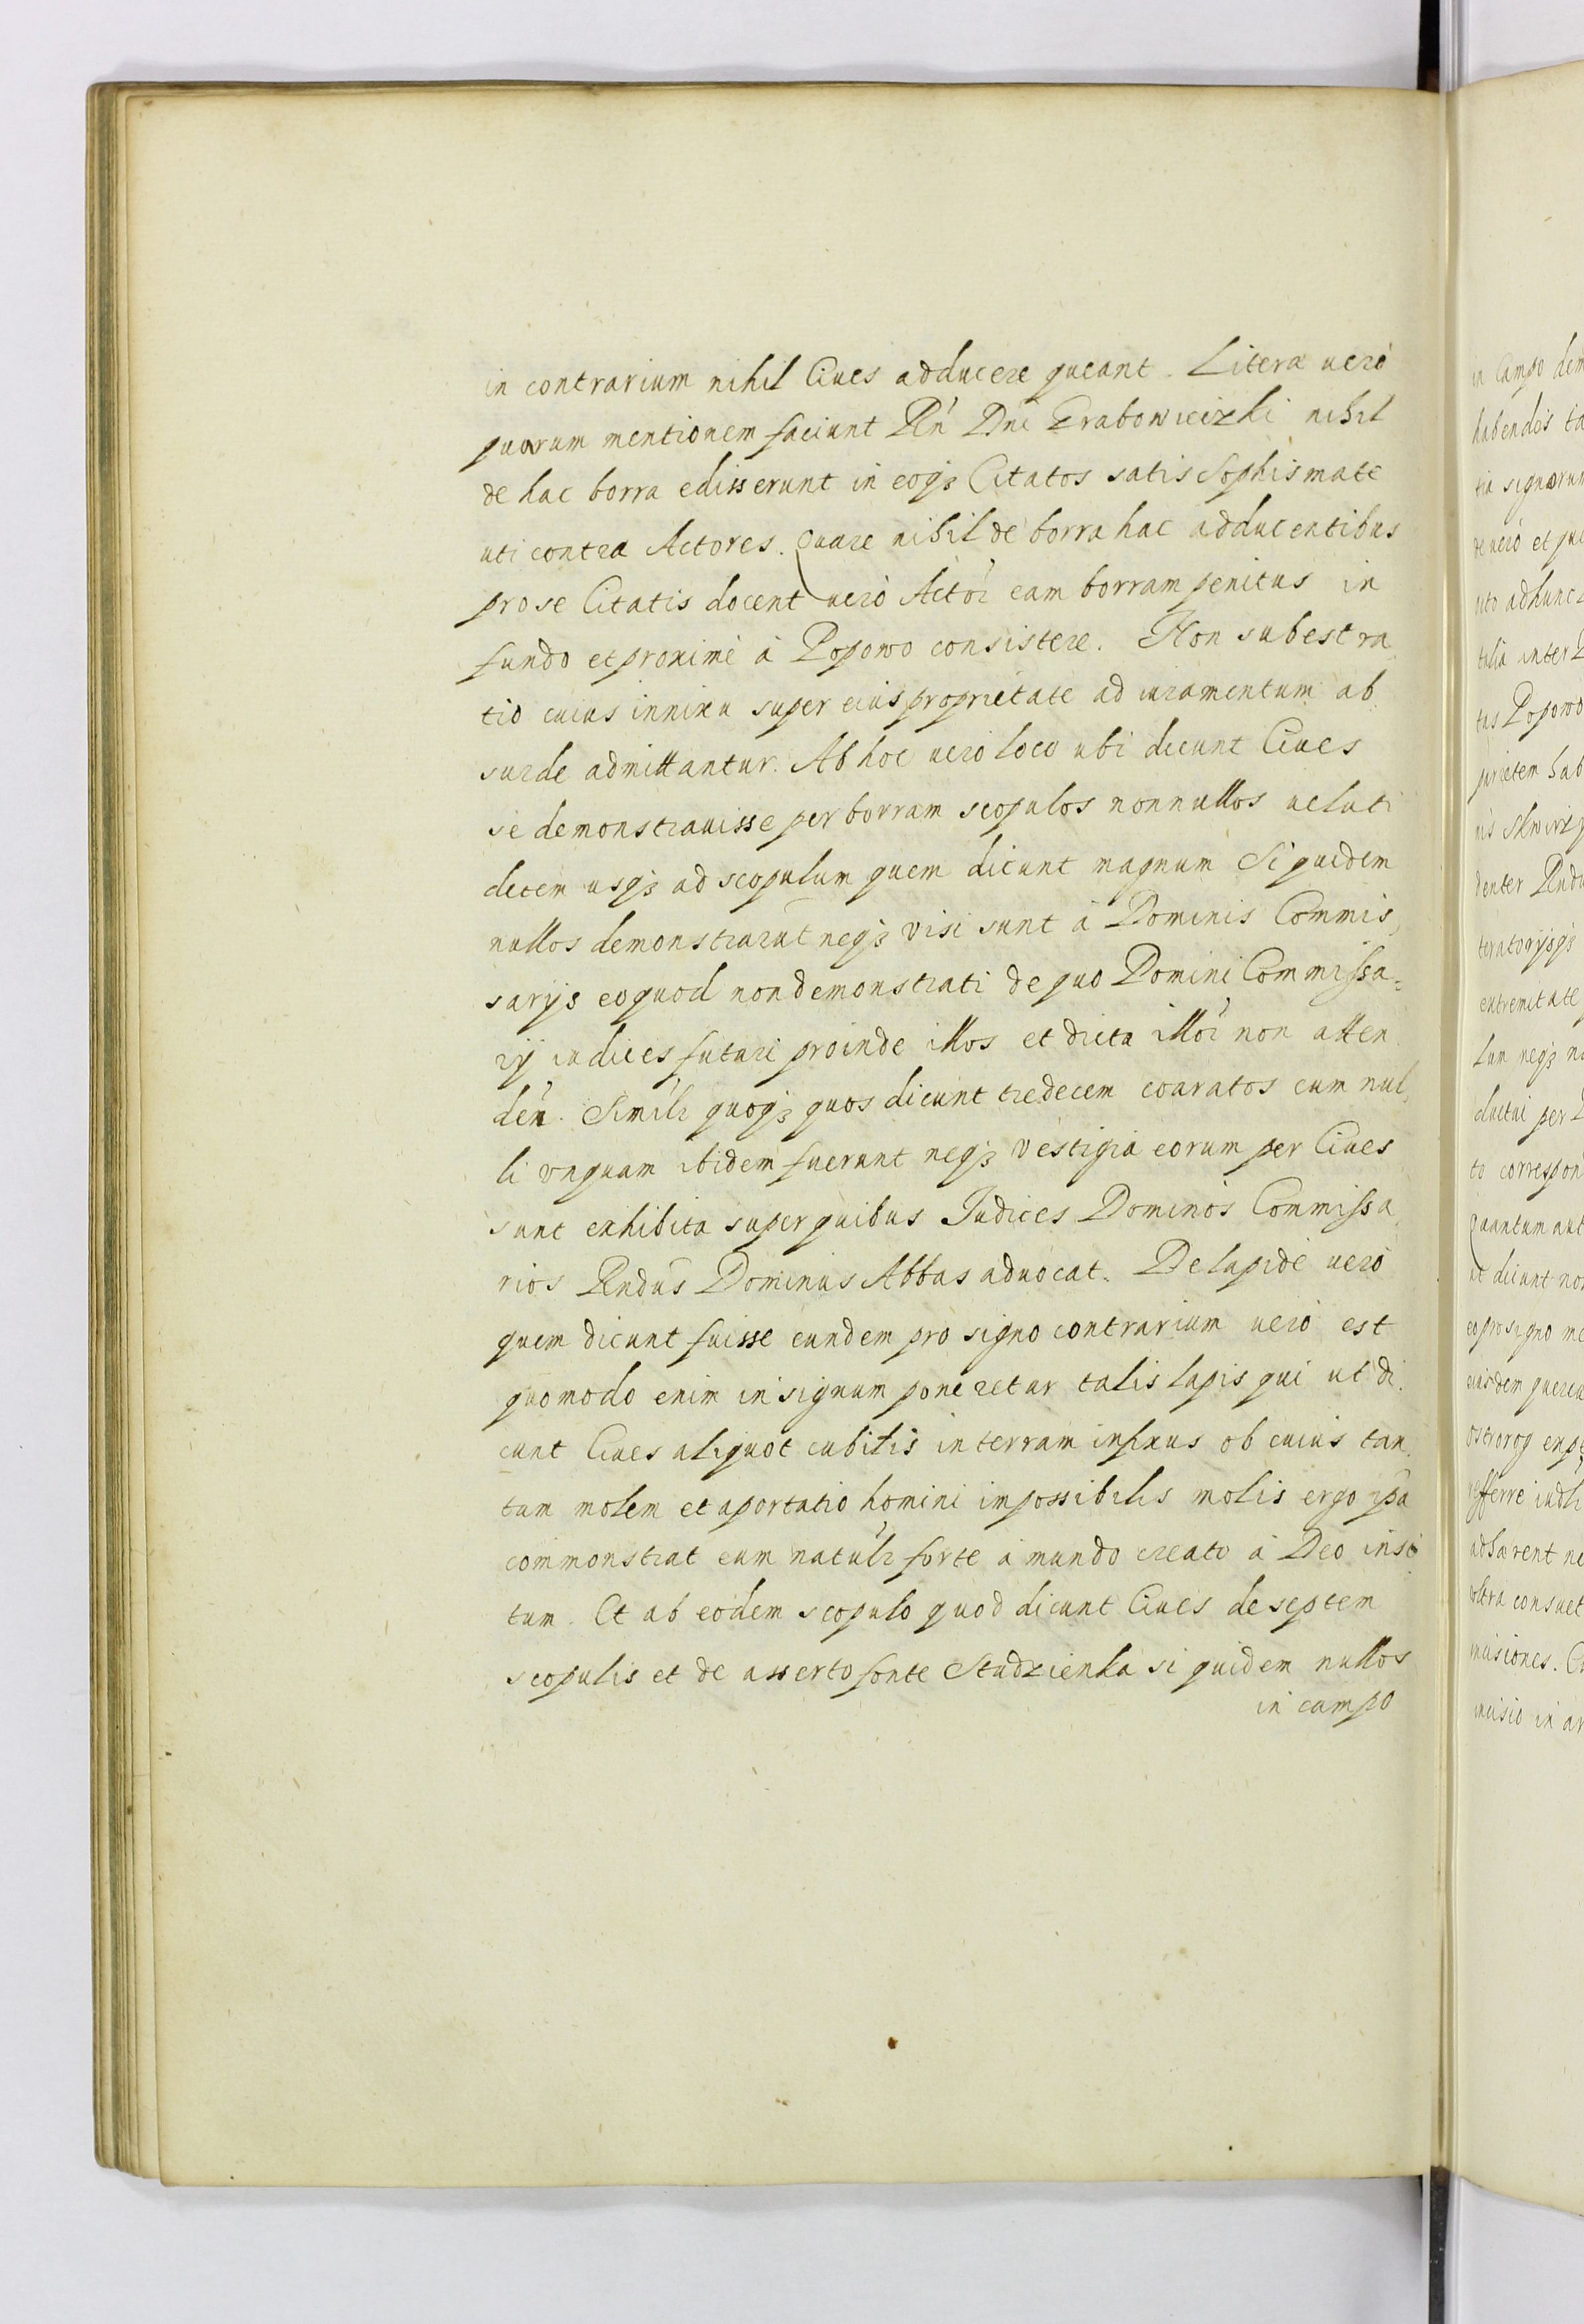 in contrarium nihil Ciues adducere queant. Litera uerò
quorum mentionem faciunt Rn̄ Dni Grabowieczki nihil
de hac borra edisserunt in eoq3 Citatos satis sophismate
uti contra Actores. Quare nihil de borra hac adducentibus
pro se Citatis docent uerò Actor̄ eam borram penitus in
fundo et proximè à Popowo consistere. Non subest ra
tio cuius innixu super eius proprietate ad iuramentum ab
surde admittantur. Ab hoc uero loco ubi dicunt Ciues
se demonstrauisse per borram scopulos nonnullos ueluti
decem usq3 ad scopulum quem dicunt magnum Siquidem
nullos demonstrarūt neq3 visi sunt à Dominis Commis,
sarijs eo quod non demonstrati de quo Domini Commissa=
rij iudices futuri proinde illos et dicta illor̄ non atten
den̄. Simil̄r quoq3 quos dicunt tredecem coaratos cum nul,
li vnquam ibidem fuerunt neq3 vestigia eorum per Ciues
sunt exhibita super quibus Judices Dominos Commissa
rios Rndūs Dominus Abbas aduocat. De lapide uerò
quem dicunt fuisse eundem pro signo contrarium uerò est
quomodo enim in signum poneretur talis lapis qui ut di.
cunt Ciues aliquot cubitis in terram infixus ob cuius tan.
tam molem et aportatio homini impossibilis molis ergo ipā
commonstrat eum natūlr forte à mundo creato à Deo insi
tum. Et ab eodem scopulo quod dicunt Ciues de septem
scopulis et de asserto fonte Studzienka si quidem nullos
in campo
in Campo
habendos
tia signorum
de uerò et
talia inter
tus Popowo
parietem
teratorijsq3
extremitate
neq3
per
to
quantum
ut dicunt
eo pro signo
eiusdem
Ostrorog
adhærent
incisiones.
incisio in